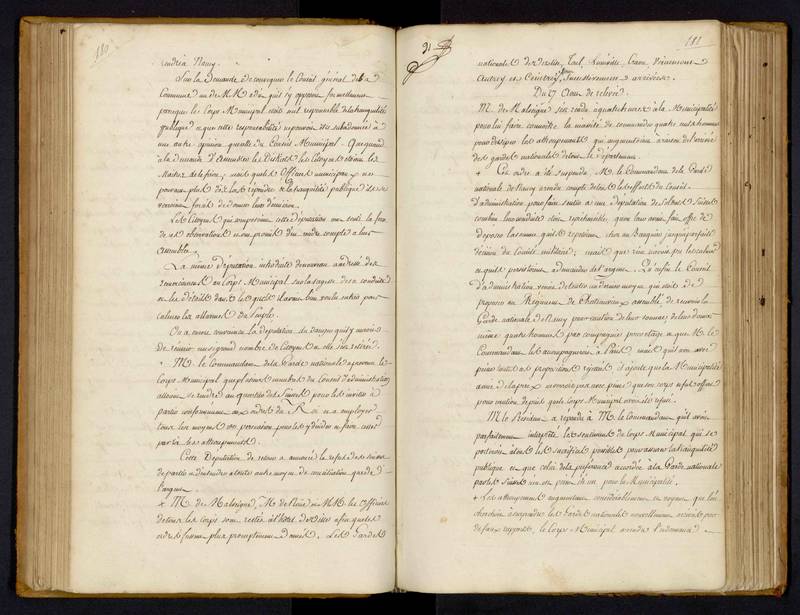 180
rendre à Nancy.
Sur la demande de convoquer le Conseil général de la
Commune un de MM a dit qu'il s'y opposoit formellement
parce que le Corps Municipal étoit seul responsable de la tranquilité
publique et que cette responsabilité ne pouvoit être subordonnée à
une autre opinion que celle du Conseil Municipal. Que quand
à la demande d'assembler les Districts les Citoyens étoient les
Maitres de le faire, mais que les Officiers municipaux ne
pouvoient plus dès lors répondre de la tranquilité publique et se
verroient forcés de donner leur démission.
Les Citoyens qui composoient cette députation ont senti la force
de ces observations et ont promis d'en rendre compte à leur
assemblée.
La même députation introduite de nouveau a adressé des
remerciemens au Corps Municipal sur la sagesse de sa conduite
et les détails dans lesquels il avoit bien voulu entrer pour
calmer les allarmes du peuple.
On a encore convaincu la députation du danger qu'il y auroit
de réunir un si grand nombre de Citoyens et elle s'est retirée.
M. le Commandant de la Garde nationale a prevenu le
Corps Municipal que plusieurs membres du Conseil d'administration
alloient se rendre au quartier des Suisses pour les inviter à
partir conformément aux ordres du Roi et à employer
tous les moyens de persuasion pour les y décider et faire cesser
par là les attroupements.
Cette Députation de retour a annoncé le refus des Suisses
de partir et d'entendre à toute autre moyen de conciliation que de
l'argent.
+ M. de Malseigne, M. de Noüe et MM. les Officiers
de tous les Corps sont restés à l'hôtel de Ville afin que les
ordres fussent plus promptement donnés. Les Gardes
181
nationales de Toul, Lunéville,
successivement arrivées.
Du 27 Aout de relevée.
M. de Malseigne s'est rendu à quatre heures à la Municipalité
pour lui faire connoitre la nécessité de commander quatre cents hommes
pour dissiper les attroupements qui augmentoient à raison de l'arrivée
des gardes nationales de tout le département.
+ Cet ordre a été suspendu, M. le Commandant de la Garde
nationale de Nancy a rendu compte de tous les efforts du Conseil
d'administration pour faire sentir à une députation de soldats Suisses
combien leur conduite étoit repréhensible, que leur avoit fait offre de
déposer la somme qu'ils repetoient chez un Banquier jusqu'à parfaite
décision du Comité militaire; mais que rien n'avoit pu les calmer
et qu'ils persistoient à demander de l'argent. Qu'enfin le Conseil
d'administration venoit de tenter un dernier moyen qui étoit de
proposer au Régiment de Chateauvieux assemblé, de recevoir la
Garde nationale de Nancy pour caution de leur somme, de leur donner
même quatre hommes par compagnie pour otage et que M. le
Commandant les accompagneroit à Paris mais qu'ils ont avec
pareilles propositions rejetté. Il ajoute que la Municipalité
Mr le President a répondu à M. le Commandant qu'il avoit
parfaitement interprété les sentimens du Corps Municipal, qui se
porteroit à tous les sacrifices possibles pour assurer la tranquilité
publique et que celui de la préférence accordée à la Garde nationale
par les Suisses n'en est point un pour la Municipalité.
+ Les attroupements augmentant considérablement et voyant que l'on
cherchoit à surprendre les Gardes nationales nouvellement arrivées par
de faux rapports, le Corps Municipal a rendu l'ordonnance